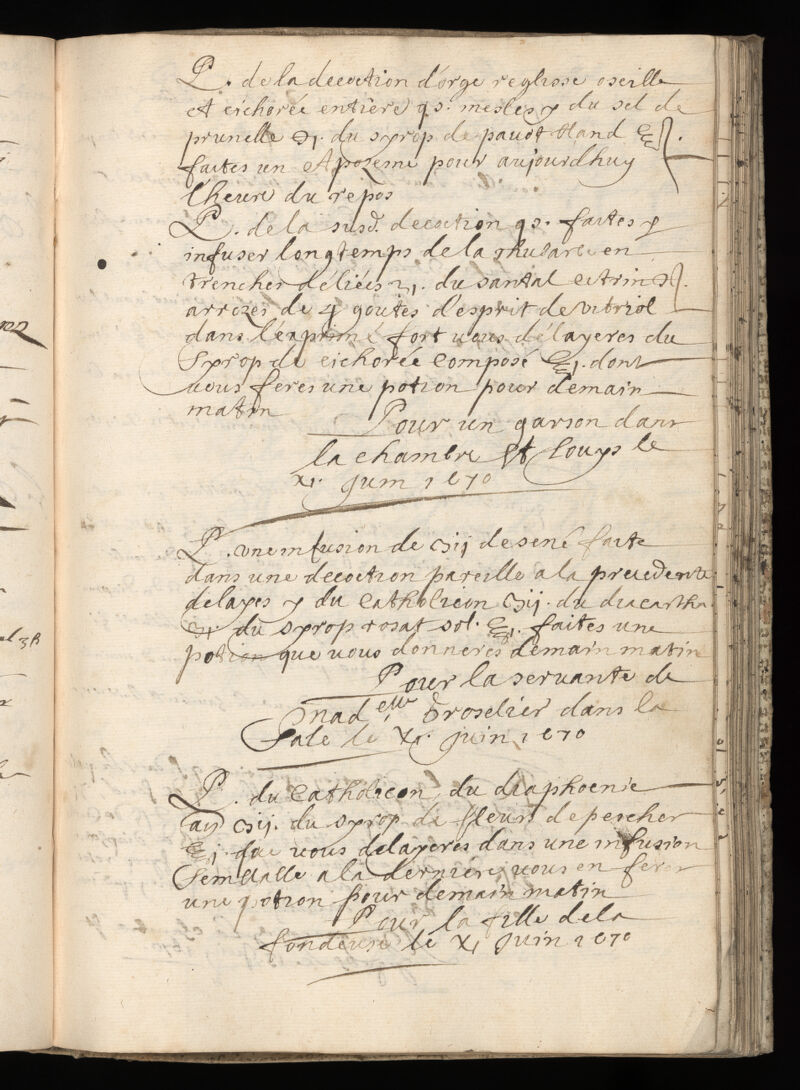 ℞. de la decoction d'orge reglisse oseille
et cichorée entiere qs. mesles y du sel de
prunelle ℈j. du syrop de pavot bland ℥
faites un Apozeme pour aujourdhuy
lheure du repos
℞. de la susd. decoction qs. faites y
infuser longtemps de la rhubarbe en
trencher deliées ʒj. du santal citrin ℈
arrozés de 4 goutes d'esprit de vitriol
dans l'exprimé fort vous délayeres du
Syrop de cichorée composé ℥j. dont
vous feres une potion pour demain
matin
Pour un garson dans
la chambre St Louys le
xj. Juin 1670
℞. une infusion de ʒij de sené faite
dans une decoction pareille a la precedente
delayes y du Catholicon ʒij. du diacartha
ʒj. du syrop rosat sol. ℥j. faites une
potion que vous donnerés demain matin
Pour la servante de
Madelle Groselier dans la
Sale le xj. Juin 1670
℞. du Catholicon, du diaphoenic
aʒ ʒij. du syrop de fleurs de pescher
℥j que vous delayeres dans une infusion
Semblable a la derniere, vous en feres
une potion pour demain matin
Pour la fille de la
fondeuse le xj Juin 1670